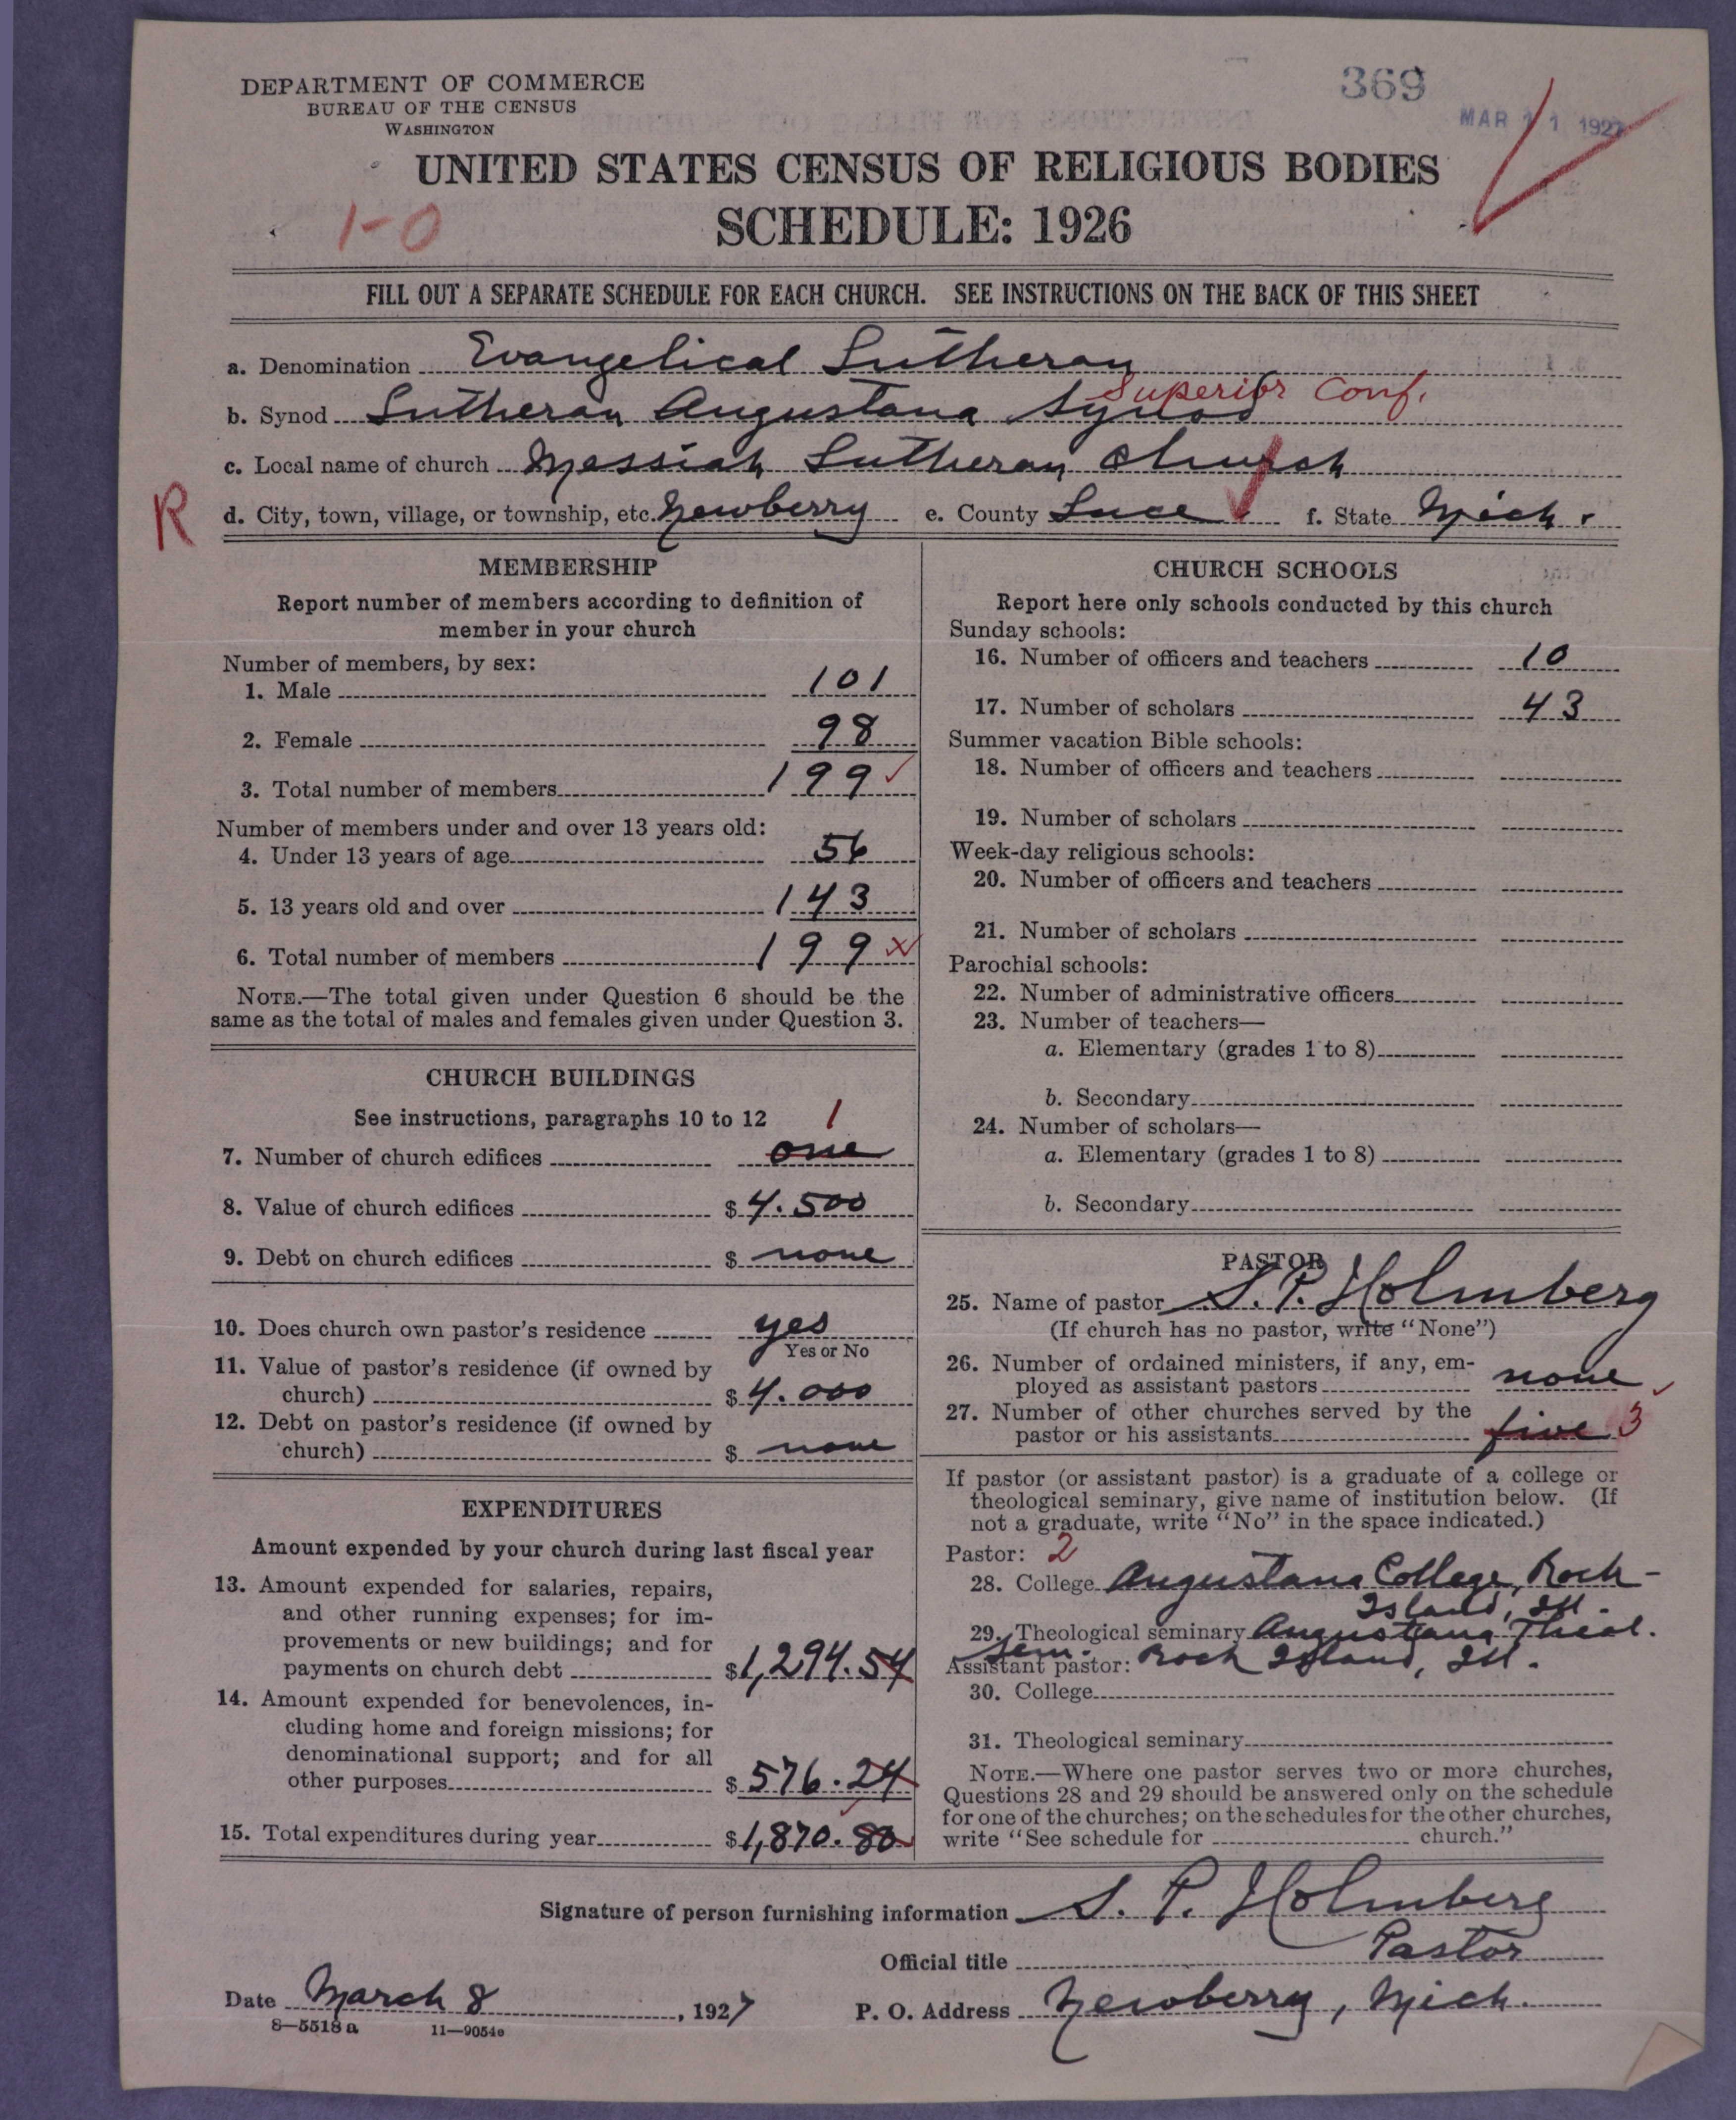 369
MAR 11 1927
DEPARTMENT OF COMMERCE
BUREAU OF THE CENSUS
WASHINGTON
UNITED STATES CENSUS OF RELIGIOUS BODIES
1-0
SCHEDULE: 1926
FILL OUT A SEPARATE SCHEDULE FOR EACH CHURCH. SEE INSTRUCTIONS ON THE BACK OF THIS SHEET
a. Denomination Evangelical Lutheran
Superior Conf.
b. Synod Lutheran Augustana Synod
c. Local name of church Messiah Lutheran Church
R
d. City, town, village, or township, etc. Newberry e. County Luce f. State Mich.
MEMBERSHIP
Report number of members according to definition of
member in your church
Number of members, by sex:
1. Male 101
2. Female 98
3. Total number of members 199
Number of members under and over 13 years old:
4. Under 13 years of age 56
5. 13 years old and over 143
6. Total number of members 199
NOTE.—The total given under Question 6 should be the
same as the total of males and females given under Question 3.
CHURCH BUILDINGS
See instructions, paragraphs 10 to 12
1
7. Number of church edifices one
8. Value of church edifices $ 4.500
9. Debt on church edifices $ none
10. Does church own pastor's residence yes
Yes or No
11. Value of pastor's residence (if owned by
church) $ 4.000
12. Debt on pastor's residence (if owned by
church) $ none
EXPENDITURES
Amount expended by your church during last fiscal year
13. Amount expended for salaries, repairs,
and other running expenses; for im-
provements or new buildings; and for
payments on church debt $ 1,294.54
14. Amount expended for benevolences, in-
cluding home and foreign missions; for
denominational support; and for all
other purposes $ 576.24
15. Total expenditures during year $ 1,870.80
CHURCH SCHOOLS
Report here only schools conducted by this church
Sunday schools:
16. Number of officers and teachers 10
17. Number of scholars 43
Summer vacation Bible schools:
18. Number of officers and teachers
19. Number of scholars
Week-day religious schools:
20. Number of officers and teachers
21. Number of scholars
Parochial schools:
22. Number of administrative officers
23. Number of teachers—
a. Elementary (grades 1 to 8)
b. Secondary
24. Number of scholars—
a. Elementary (grades 1 to 8)
b. Secondary
PASTOR
25. Name of pastor S. P. Holmberg
(If church has no pastor, write "None")
26. Number of ordained ministers, if any, em-
ployed as assistant pastors none
27. Number of other churches served by the
pastor or his assistants five 3
If pastor (or assistant pastor) is a graduate of a college or
theological seminary, give name of institution below. (If
not a graduate, write "No" in the space indicated.)
Pastor: 2
28. College Augustana College, Rock-
Island, Ill.
29. Theological seminary Augustana Theol.
Sem.
Assistant pastor: Rock Island, Ill.
30. College
31. Theological seminary
NOTE.—Where one pastor serves two or more churches,
Questions 28 and 29 should be answered only on the schedule
for one of the churches; on the schedules for the other churches,
write "See schedule for church."
Signature of person furnishing information S. P. Holmberg
Official title Pastor
Date March 8, 1927 P. O. Address Newberry, Mich.
8—5518 a 11—9054e